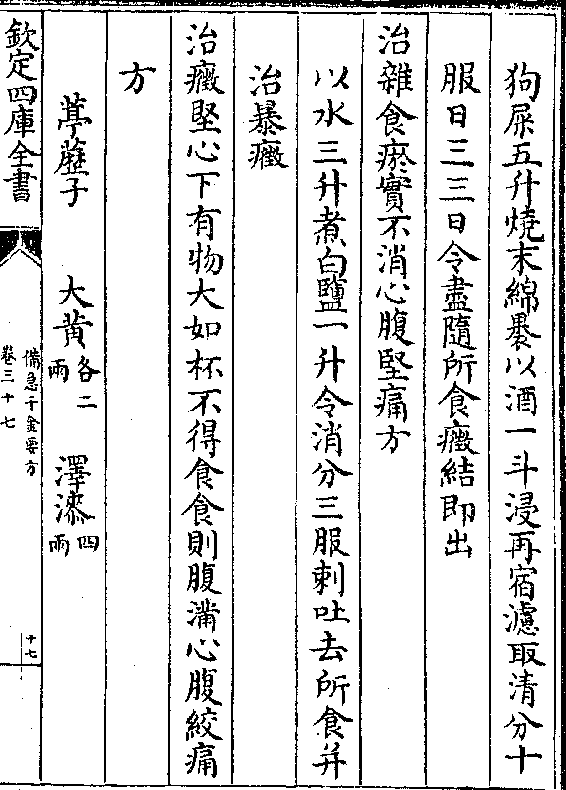 狗屎五升燒末綿裹以酒一斗浸再宿濾取清分十
服日三三日令盡隨所食癥結即出
治雜食瘀實不消心腹堅痛方
以水三升煮白鹽一升令消分三服刺吐去所食并
治暴癥
治癥堅心下有物大如杯不得食食則腹滿心腹絞痛
方
葶藶子 大黃各二兩 澤漆四兩
欽定四庫全書 備急千金要方 卷三十七 十七